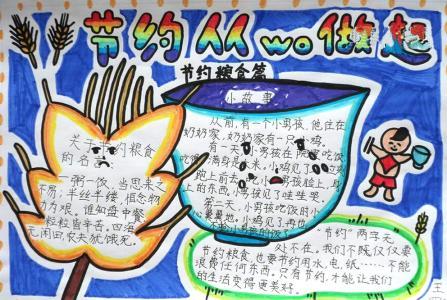 节约从wo做起
节约粮食篇
小故事
从前,有一个小男孩,他住在
奶奶家,奶奶家有一只小鸡。
有一天,小男孩在院
吃饭
跑上前去
小男孩脸上,身
上的东西,小男孩哇哇哭
第二天,小男孩吃饭的小
关于节约粮食
的名言
一粥一饭,当思来之
不易;半丝半缕,恒念物
力为艰。谁知盘中餐
粒粒皆辛苦。四海
无闲田,农夫犹饿死。
节约”两字无
处不在。我们不仅仅要
节约粮食,也要节约用水,电,纸……不能
浪费任何东西。只有节约,才能让我们
的生活变得更美好。